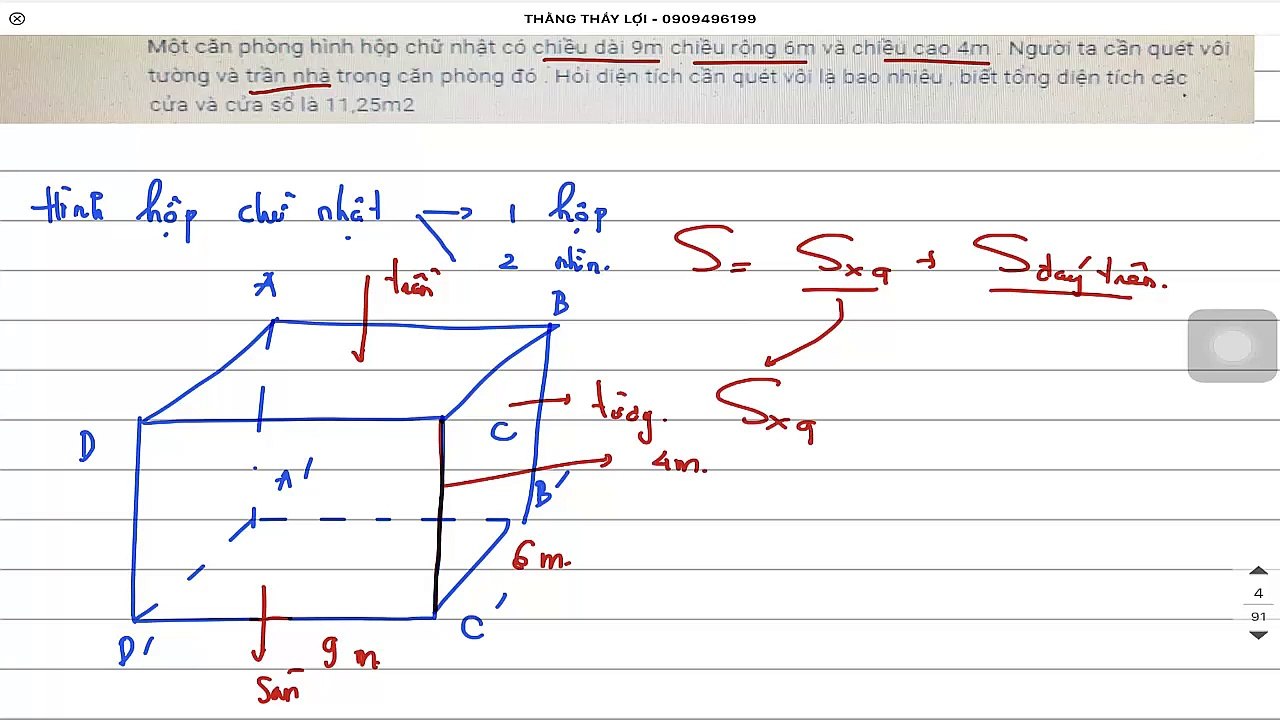 THẦNG THẦY LỢI - 0909496199
Một căn phòng hình hộp chữ nhật có chiều dài 9m chiều rộng 6m và chiều cao 4m . Người ta cần quét vôi
tường và trần nhà trong căn phòng đó . Hỏi diện tích cần quét vôi là bao nhiêu , biết tổng diện tích các
cửa và cửa sổ là 11,25m2
Hình hộp chữ nhật → 1 hộp
2 nhìn.
S = Sxq + Sđáy trên.
trần
A
B
Sxq
tường.
D
C
4m.
A'
B'
6 m.
4
91
D'
C'
9 m
Sàn